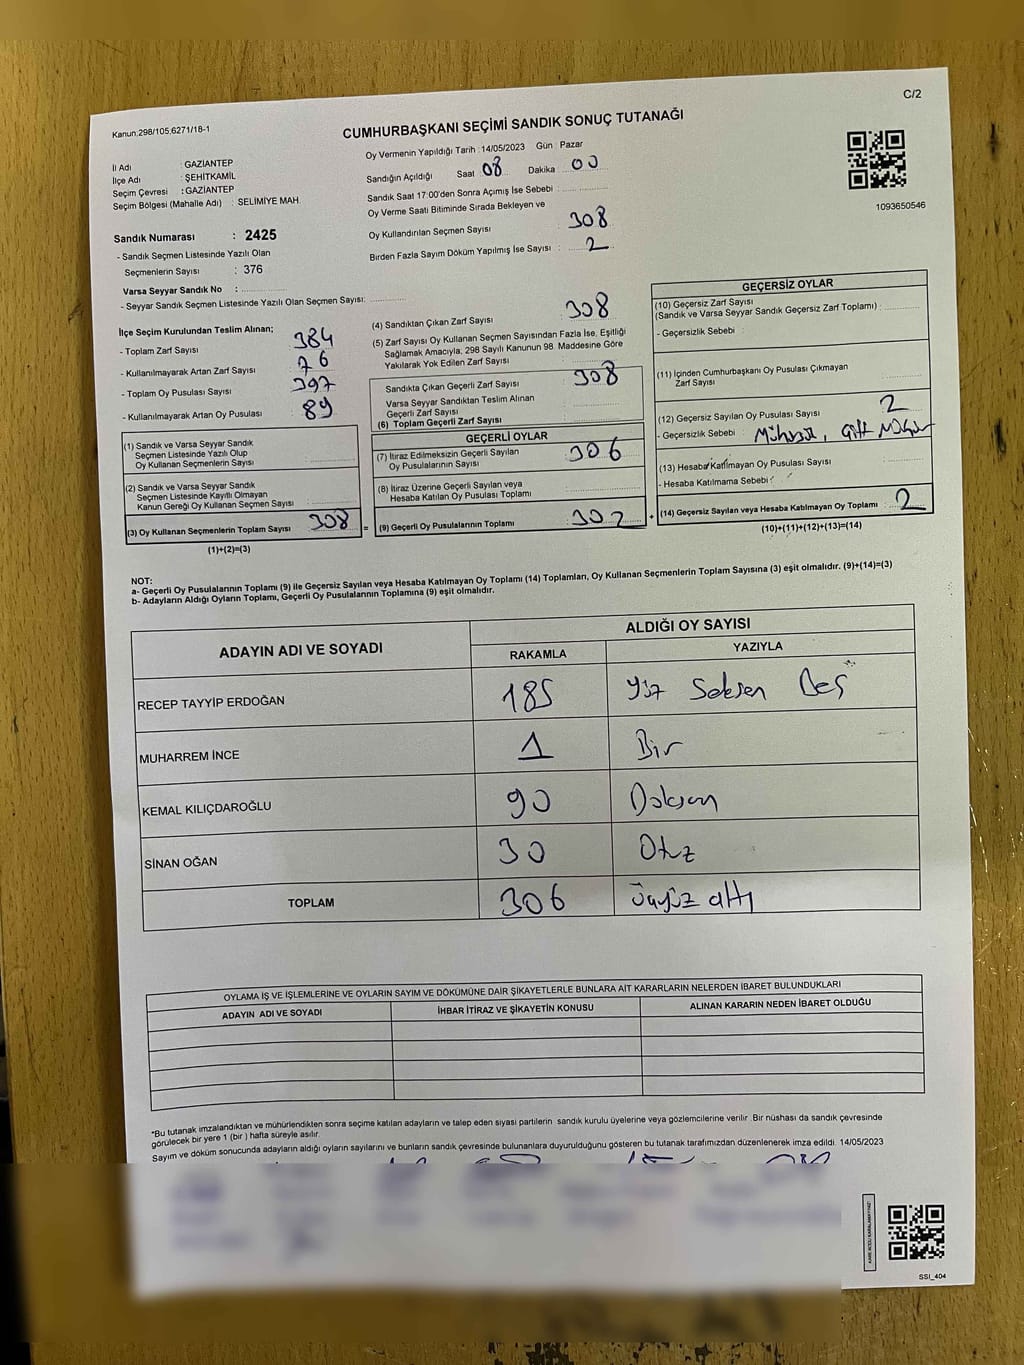 C/2
Kanun;298/105,6271/18-1
CUMHURBAŞKANI SEÇİMİ SANDIK SONUÇ TUTANAĞI
İl Adı : GAZİANTEP
İlçe Adı : ŞEHİTKAMİL
Seçim Çevresi : GAZİANTEP
Seçim Bölgesi (Mahalle Adı) : SELİMİYE MAH.
Oy Vermenin Yapıldığı Tarih :14/05/2023 Gün : Pazar
Sandığın Açıldığı Saat 08 Dakika 00
Sandık Saat 17:00'den Sonra Açımış İse Sebebi :
Oy Verme Saati Bitiminde Sırada Bekleyen ve
Oy Kullandırılan Seçmen Sayısı : 308
Birden Fazla Sayım Döküm Yapılmış İse Sayısı : 2
1093650546
Sandık Numarası : 2425
- Sandık Seçmen Listesinde Yazılı Olan
Seçmenlerin Sayısı : 376
Varsa Seyyar Sandık No :
- Seyyar Sandık Seçmen Listesinde Yazılı Olan Seçmen Sayısı:
İlçe Seçim Kurulundan Teslim Alınan;
- Toplam Zarf Sayısı : 384
- Kullanılmayarak Artan Zarf Sayısı : 76
- Toplam Oy Pusulası Sayısı : 397
- Kullanılmayarak Artan Oy Pusulası : 89
(1) Sandık ve Varsa Seyyar Sandık
Seçmen Listesinde Yazılı Olup
Oy Kullanan Seçmenlerin Sayısı :
(2) Sandık ve Varsa Seyyar Sandık
Seçmen Listesinde Kayıtlı Olmayan
Kanun Gereği Oy Kullanan Seçmen Sayısı :
(3) Oy Kullanan Seçmenlerin Toplam Sayısı : 308 =
(1)+(2)=(3)
(4) Sandıktan Çıkan Zarf Sayısı : 308
(5) Zarf Sayısı Oy Kullanan Seçmen Sayısından Fazla İse, Eşitliği
Sağlamak Amacıyla, 298 Sayılı Kanunun 98. Maddesine Göre
Yakılarak Yok Edilen Zarf Sayısı :
Sandıkta Çıkan Geçerli Zarf Sayısı : 308
Varsa Seyyar Sandıktan Teslim Alınan
Geçerli Zarf Sayısı :
(6) Toplam Geçerli Zarf Sayısı :
GEÇERLİ OYLAR
(7) İtiraz Edilmeksizin Geçerli Sayılan
Oy Pusulalarının Sayısı : 306
(8) İtiraz Üzerine Geçerli Sayılan veya
Hesaba Katılan Oy Pusulası Toplamı :
(9) Geçerli Oy Pusulalarının Toplamı : +
GEÇERSİZ OYLAR
(10) Geçersiz Zarf Sayısı
(Sandık ve Varsa Seyyar Sandık Geçersiz Zarf Toplamı) :
- Geçersizlik Sebebi :
(11) İçinden Cumhurbaşkanı Oy Pusulası Çıkmayan
Zarf Sayısı :
(12) Geçersiz Sayılan Oy Pusulası Sayısı : 2
- Geçersizlik Sebebi : Mühürsüz, Çift Mühür
(13) Hesaba Katılmayan Oy Pusulası Sayısı :
- Hesaba Katılmama Sebebi :
(14) Geçersiz Sayılan veya Hesaba Katılmayan Oy Toplamı : 2
(10)+(11)+(12)+(13)=(14)
NOT:
a- Geçerli Oy Pusulalarının Toplamı (9) ile Geçersiz Sayılan veya Hesaba Katılmayan Oy Toplamı (14) Toplamları, Oy Kullanan Seçmenlerin Toplam Sayısına (3) eşit olmalıdır. (9)+(14)=(3)
b- Adayların Aldığı Oyların Toplamı, Geçerli Oy Pusulalarının Toplamına (9) eşit olmalıdır.
ADAYIN ADI VE SOYADI ALDIĞI OY SAYISI
RAKAMLA YAZIYLA
RECEP TAYYİP ERDOĞAN 185 Yüz Seksen Beş
MUHARREM İNCE 1 Bir
KEMAL KILIÇDAROĞLU 90 Doksan
SİNAN OĞAN 30 Otuz
TOPLAM 306 üçyüz altı
OYLAMA İŞ VE İŞLEMLERİNE VE OYLARIN SAYIM VE DÖKÜMÜNE DAİR ŞİKAYETLERLE BUNLARA AİT KARARLARIN NELERDEN İBARET BULUNDUKLARI
ADAYIN ADI VE SOYADI İHBAR İTİRAZ VE ŞİKAYETİN KONUSU ALINAN KARARIN NEDEN İBARET OLDUĞU
*Bu tutanak imzalandıktan ve mühürlendikten sonra seçime katılan adayların ve talep eden siyasi partilerin sandık kurulu üyelerine veya gözlemcilerine verilir. Bir nüshası da sandık çevresinde
görülecek bir yere 1 (bir ) hafta süreyle asılır.
Sayım ve döküm sonucunda adayların aldığı oyların sayılarını ve bunların sandık çevresinde bulunanlara duyurulduğunu gösteren bu tutanak tarafımızdan düzenlenerek imza edildi. 14/05/2023
SSI_404